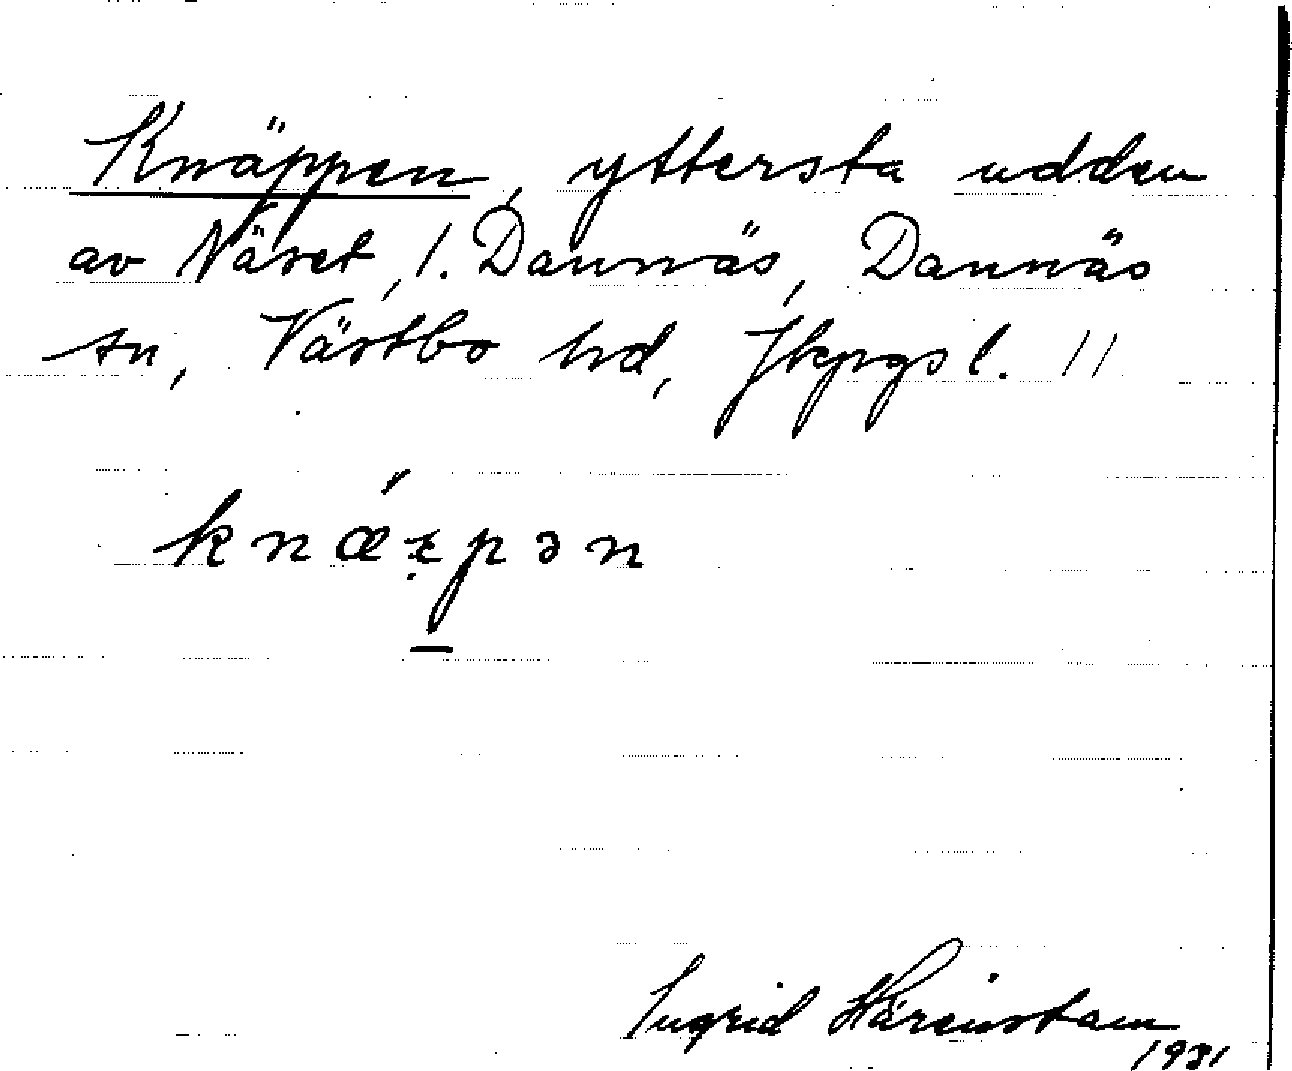 Knäppen, yttersta udden
av Näset, l. Dannäs, Dannäs
sn, Västbo hd, Jkpgs l. 11
knæ´ᶒpən
Ingrid Härenstam
1931